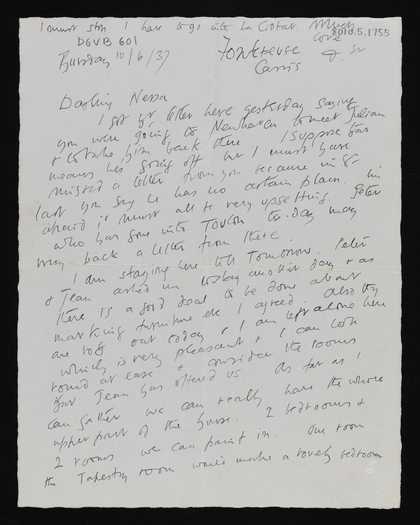 I must stop I have to go into La Ciotat Much
love
DGVB 601
8010.5.1755
Thursday 10/6/37
FONTCREUSE
& Jr
Cassis
Darling Nessa
I got yr letter here yesterday saying
you were going to Newhaven to meet Julian
& to take him back there I suppose this
means his going off but I must have
missed a letter from you because in yr
last you say he has no certain plan. I'm
afraid it must all be very upsetting. Peter
who has gone into Toulon to-day may
bring back a letter from there
I am staying here till tomorrow. Peter
& Jean asked me to stay another day & as
there is a good deal to be done about
marking furniture etc I agreed. Also they
are both out today & I am left alone here
which is very pleasant & I can look
round at ease & consider the rooms
that Jean has offered us. As far as I
can gather we can really have the whole
upper part of the house. 2 bedrooms &
2 rooms we can paint in. One room
the Tapestry room would make a lovely bedroom